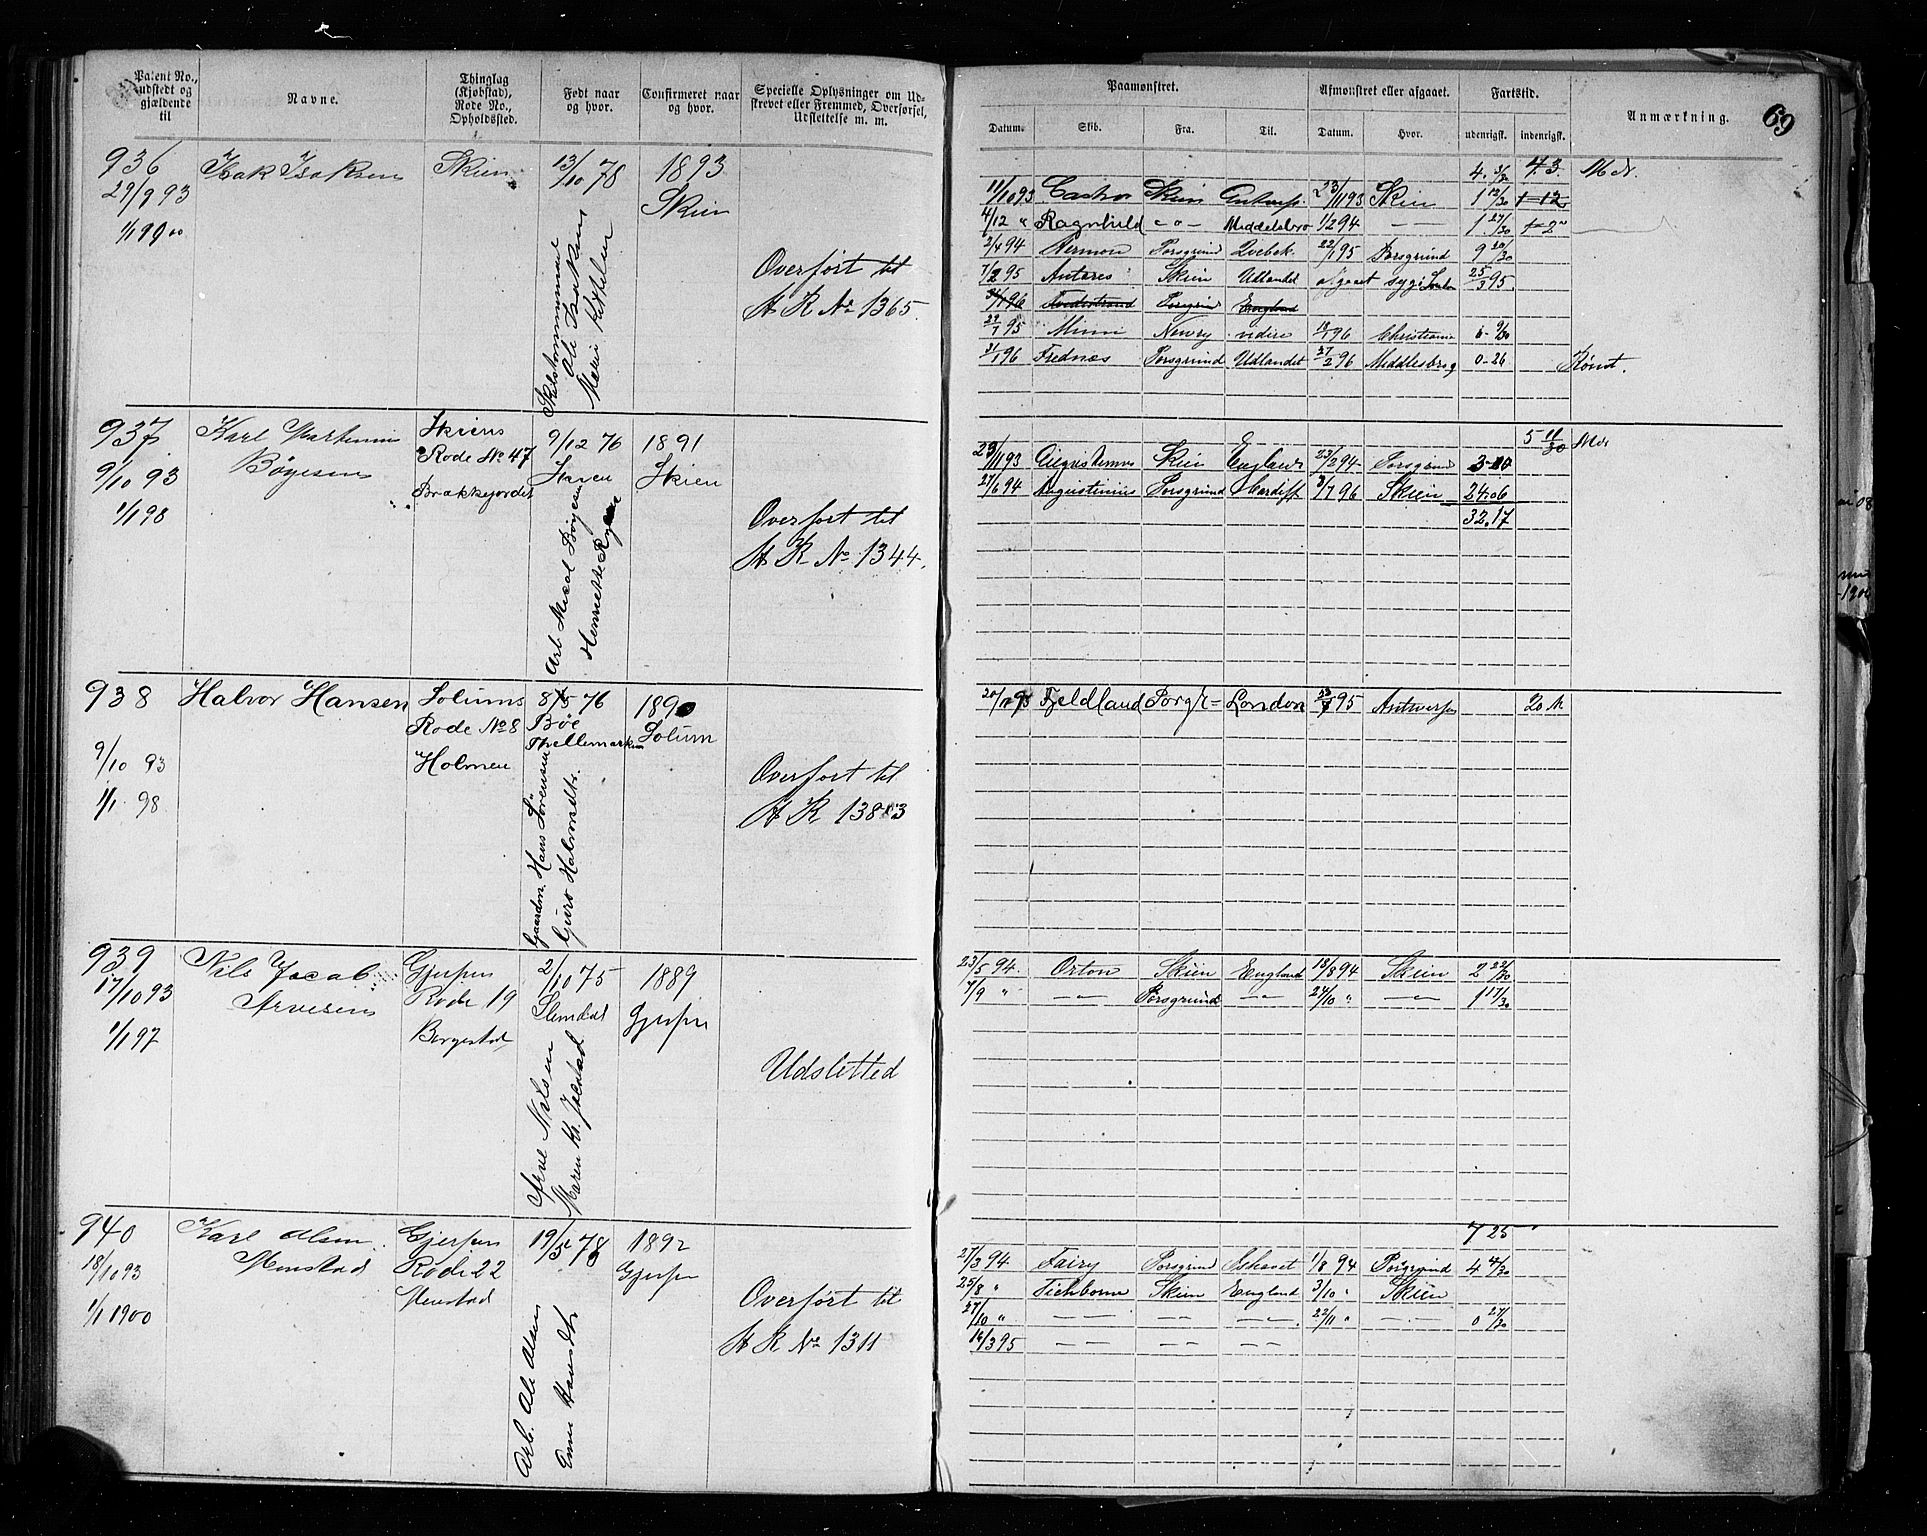 Patent No., udstedt og gjældende til
Navne.
Thinglag (Kjøbstad), Rode No., Opholdssted.
Født naar og hvor.
Confirmeret naar og hvor.
Specielle Oplysninger om Udskrevet eller Fremmed, Overførsel, Udslettelse m. m.
Paamønstret.
Afmønstret eller afgaaet.
Fartstid.
Anmærkning.
69
Datum. Skib. Fra. Til. Datum. Hvor. udenrigsk. indenrigsk.
936
29/9 93
1/1 99 00
Isak Isaksen
Skien
13/10 78
Ole Isaksen
1893
Skien
Overført til
H R No 1365.
11/10 93 Castor Skien Antwerp. 23/11 93 Skien 1 12/30 1-12
4/12 " Ragnhild -o- Middelsbro 1/2 94 — 1 27/30
2/4 94 Porsgrund Qvebek. 22/1 95 Porsgrund 9 20/30
7/2 95 Antares Skien Udlandet afgaaet syg 25/3 95.
Porsgrund England
22/7 95 Mimi Newry videre 18/1 96 Christiania 6- 9/30
31/1 96 Frednæs Porsgrund Udlandet 27/2 96 Middlesbrog 0-26
937
9/10 93
1/1 98
Karl Martinius
Bøyesen
Skiens
Rode No 47
Brækkejordet
9/12 76
Skien
Henriette
1891
Skien
Overført til
H R No 1344.
5 11/30 Mdr
29/11 93 Augustinus Skien England 23/2 94 Porsgrund
27/6 94 Augustinus Porsgrund Cardiff 3/7 96 Skien 24.06
32.17
938
9/10 93
1/1 98
Halvor Hansen
Solums
Rode No 8
Holmen
8/5 76
Bøe
Thellemarken
Gaardm. Hans Sørensen
Guro Halvorsdtr.
1890
Solum
Overført til
H R 1383
Fjeldland Porgr= London 95 Antwerpen 20 M
939
17/10 93
1/1 97
Nils Jacob
Arvesen
Gjerpen
Rode 19
Borgestad
2/10 75
Slemdal
Arve Nilsen
Maren K.
1889
Gjerpen
Udsletted
23/5 94. Orton Skien England 18/8 94 Skien 2 22/30
7/9 " —"— Porsgrund —"— 24/10 " —"— 1 17/30
940
18/10 93
1/1 1900
Karl Olsen
Menstad
Gjerpen
Rode 22
Menstad
19/5 78
Arb. Ole Olsen
1892
Gjerpen
Overført til
H R No 1311
7 25
27/3 94. Fairy Porsgrund 1/8 94 Porsgrund 4 4/30
25/8 " Tichborne Skien England 3/10 " Skien
27/10 " — — — 22/11 " — 0 27/30
14/3 95 — — —